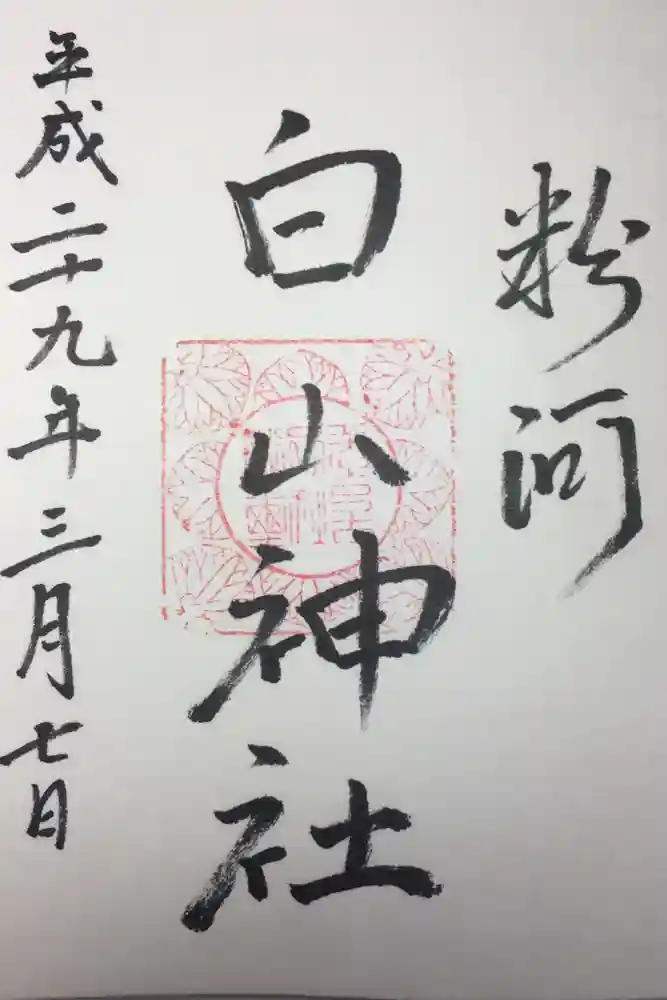 粉河
白山神社
平成二十九年三月七日